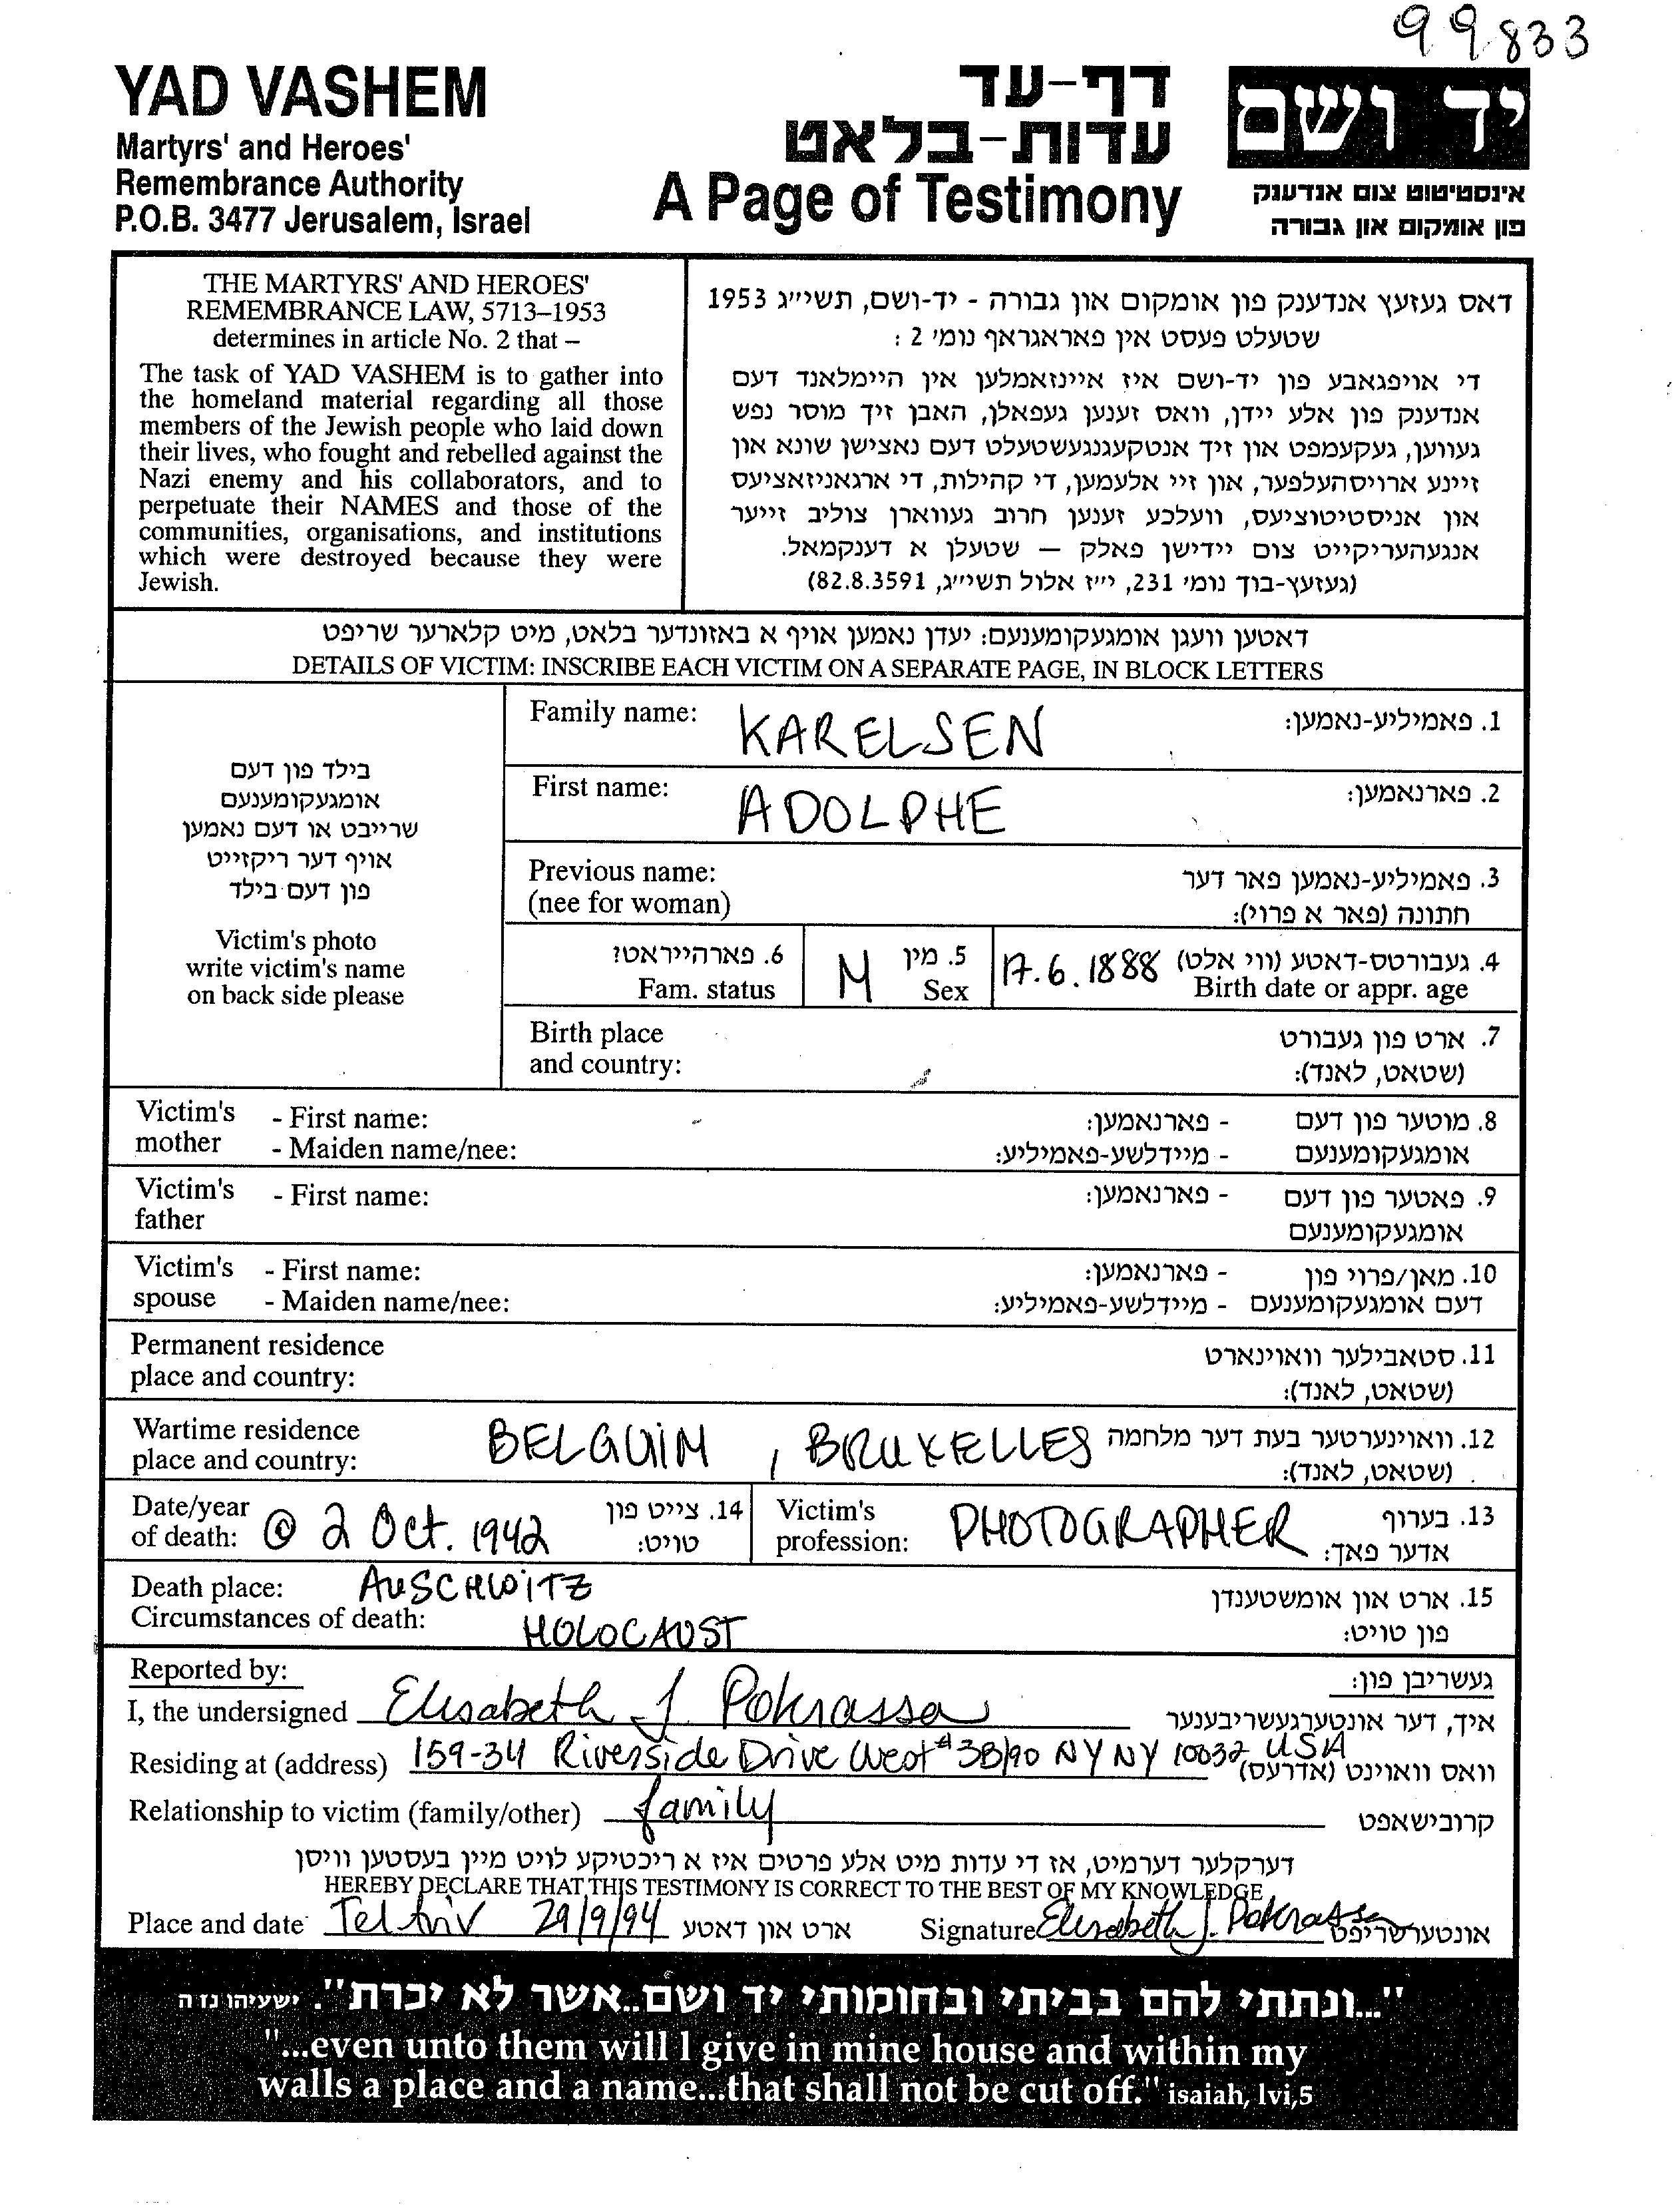 99833
YAD VASHEM
Martyrs' and Heroes'
Remembrance Authority
P.O.B. 3477 Jerusalem, Israel
דף-עד
עדות-בלאט
A Page of Testimony
יד ושם
אינסטיטוט צום אנדענק
פון אומקום און גבורה
THE MARTYRS' AND HEROES'
REMEMBRANCE LAW, 5713–1953
determines in article No. 2 that –
The task of YAD VASHEM is to gather into
the homeland material regarding all those
members of the Jewish people who laid down
their lives, who fought and rebelled against the
Nazi enemy and his collaborators, and to
perpetuate their NAMES and those of the
communities, organisations, and institutions
which were destroyed because they were
Jewish.
דאס געזעץ אנדענק פון אומקום און גבורה - יד-ושם, תשי״ג 1953
שטעלט פעסט אין פאראגראף נומ׳ 2 :
די אויפגאבע פון יד-ושם איז איינזאמלען אין היימלאנד דעם
אנדענק פון אלע יידן, וואס זענען געפאלן, האבן זיך מוסר נפש
געווען, געקעמפט און זיך אנטקעגנגעשטעלט דעם נאצישן שונא און
זיינע ארויסהעלפער, און זיי אלעמען, די קהילות, די ארגאניזאציעס
און אניסטיטוציעס, וועלכע זענען חרוב געווארן צוליב זייער
אנגעהעריקייט צום יידישן פאלק — שטעלן א דענקמאל.
(געזעץ-בוך נומ׳ 231, י״ז אלול תשי״ג, 82.8.3591)
דאטען וועגן אומגעקומענעם: יעדן נאמען אויף א באזונדער בלאט, מיט קלארער שריפט
DETAILS OF VICTIM: INSCRIBE EACH VICTIM ON A SEPARATE PAGE, IN BLOCK LETTERS
בילד פון דעם
אומגעקומענעם
שרייבט או דעם נאמען
אויף דער ריקזייט
פון דעם בילד
Victim's photo
write victim's name
on back side please
Family name: KARELSEN 1. פאמיליע-נאמען:
First name: ADOLPHE 2. פארנאמען:
Previous name: 3. פאמיליע-נאמען פאר דער
(nee for woman) חתונה (פאר א פרוי):
6. פארהייראט? M 5. מין 17.6.1888 4. געבורטס-דאטע (ווי אלט)
Fam. status Sex Birth date or appr. age
Birth place 7. ארט פון געבורט
and country: (שטאט, לאנד):
Victim's - First name: - פארנאמען: 8. מוטער פון דעם
mother - Maiden name/nee: - מיידלשע-פאמיליע: אומגעקומענעם
Victim's - First name: - פארנאמען: 9. פאטער פון דעם
father אומגעקומענעם
Victim's - First name: - פארנאמען: 10. מאן/פרוי פון
spouse - Maiden name/nee: - מיידלשע-פאמיליע: דעם אומגעקומענעם
Permanent residence 11. סטאבילער וואוינארט
place and country: (שטאט, לאנד):
Wartime residence BELGUIM , BRUXELLES 12. וואוינערטער בעת דער מלחמה
place and country: (שטאט, לאנד):
Date/year 14. צייט פון Victim's 13. בערוף
of death: @ 2 Oct. 1942 טויט: profession: PHOTOGRAPHER אדער פאך:
Death place: AUSCHWITZ 15. ארט און אומשטענדן
Circumstances of death: HOLOCAUST פון טויט:
Reported by: געשריבן פון:
I, the undersigned Elisabeth J. Pokrassa איך, דער אונטערגעשריבענער
Residing at (address) 159-34 Riverside Drive West # 3B/90 NY NY 10032 USA וואס וואוינט (אדרעס)
Relationship to victim (family/other) family קרובישאפט
דערקלער דערמיט, אז די עדות מיט אלע פרטים איז א ריכטיקע לויט מיין בעסטען וויסן
HEREBY DECLARE THAT THIS TESTIMONY IS CORRECT TO THE BEST OF MY KNOWLEDGE
Place and date Tel Aviv 29/9/94 ארט און דאטע Signature Elisabeth J. Pokrassa אונטערשריפט
"...ונתתי להם בביתי ובחומותי יד ושם...אשר לא יכרת". ישעיהו נו ה
"...even unto them will I give in mine house and within my
walls a place and a name...that shall not be cut off." isaiah, lvi,5